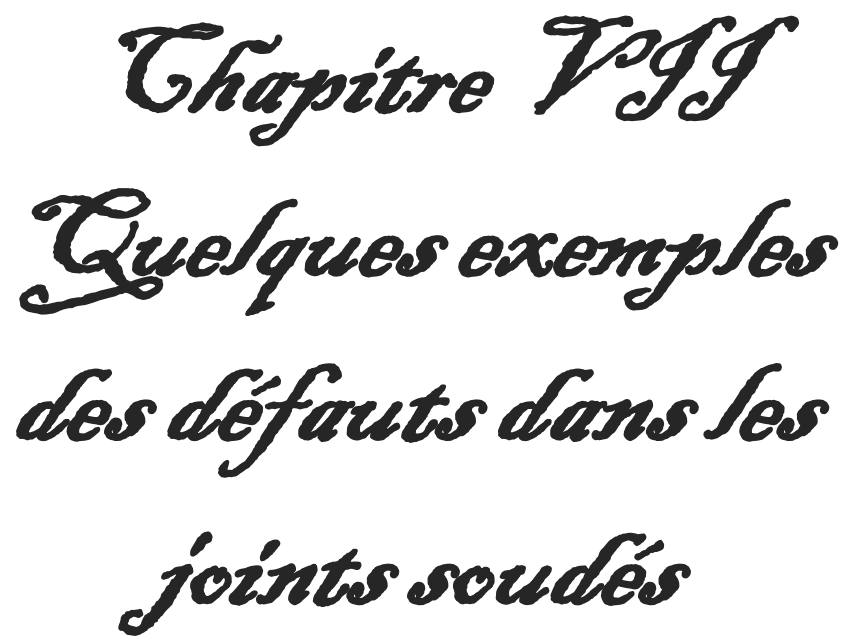 Chapitre VII
Quelques exemples
des défauts dans les
joints soudés